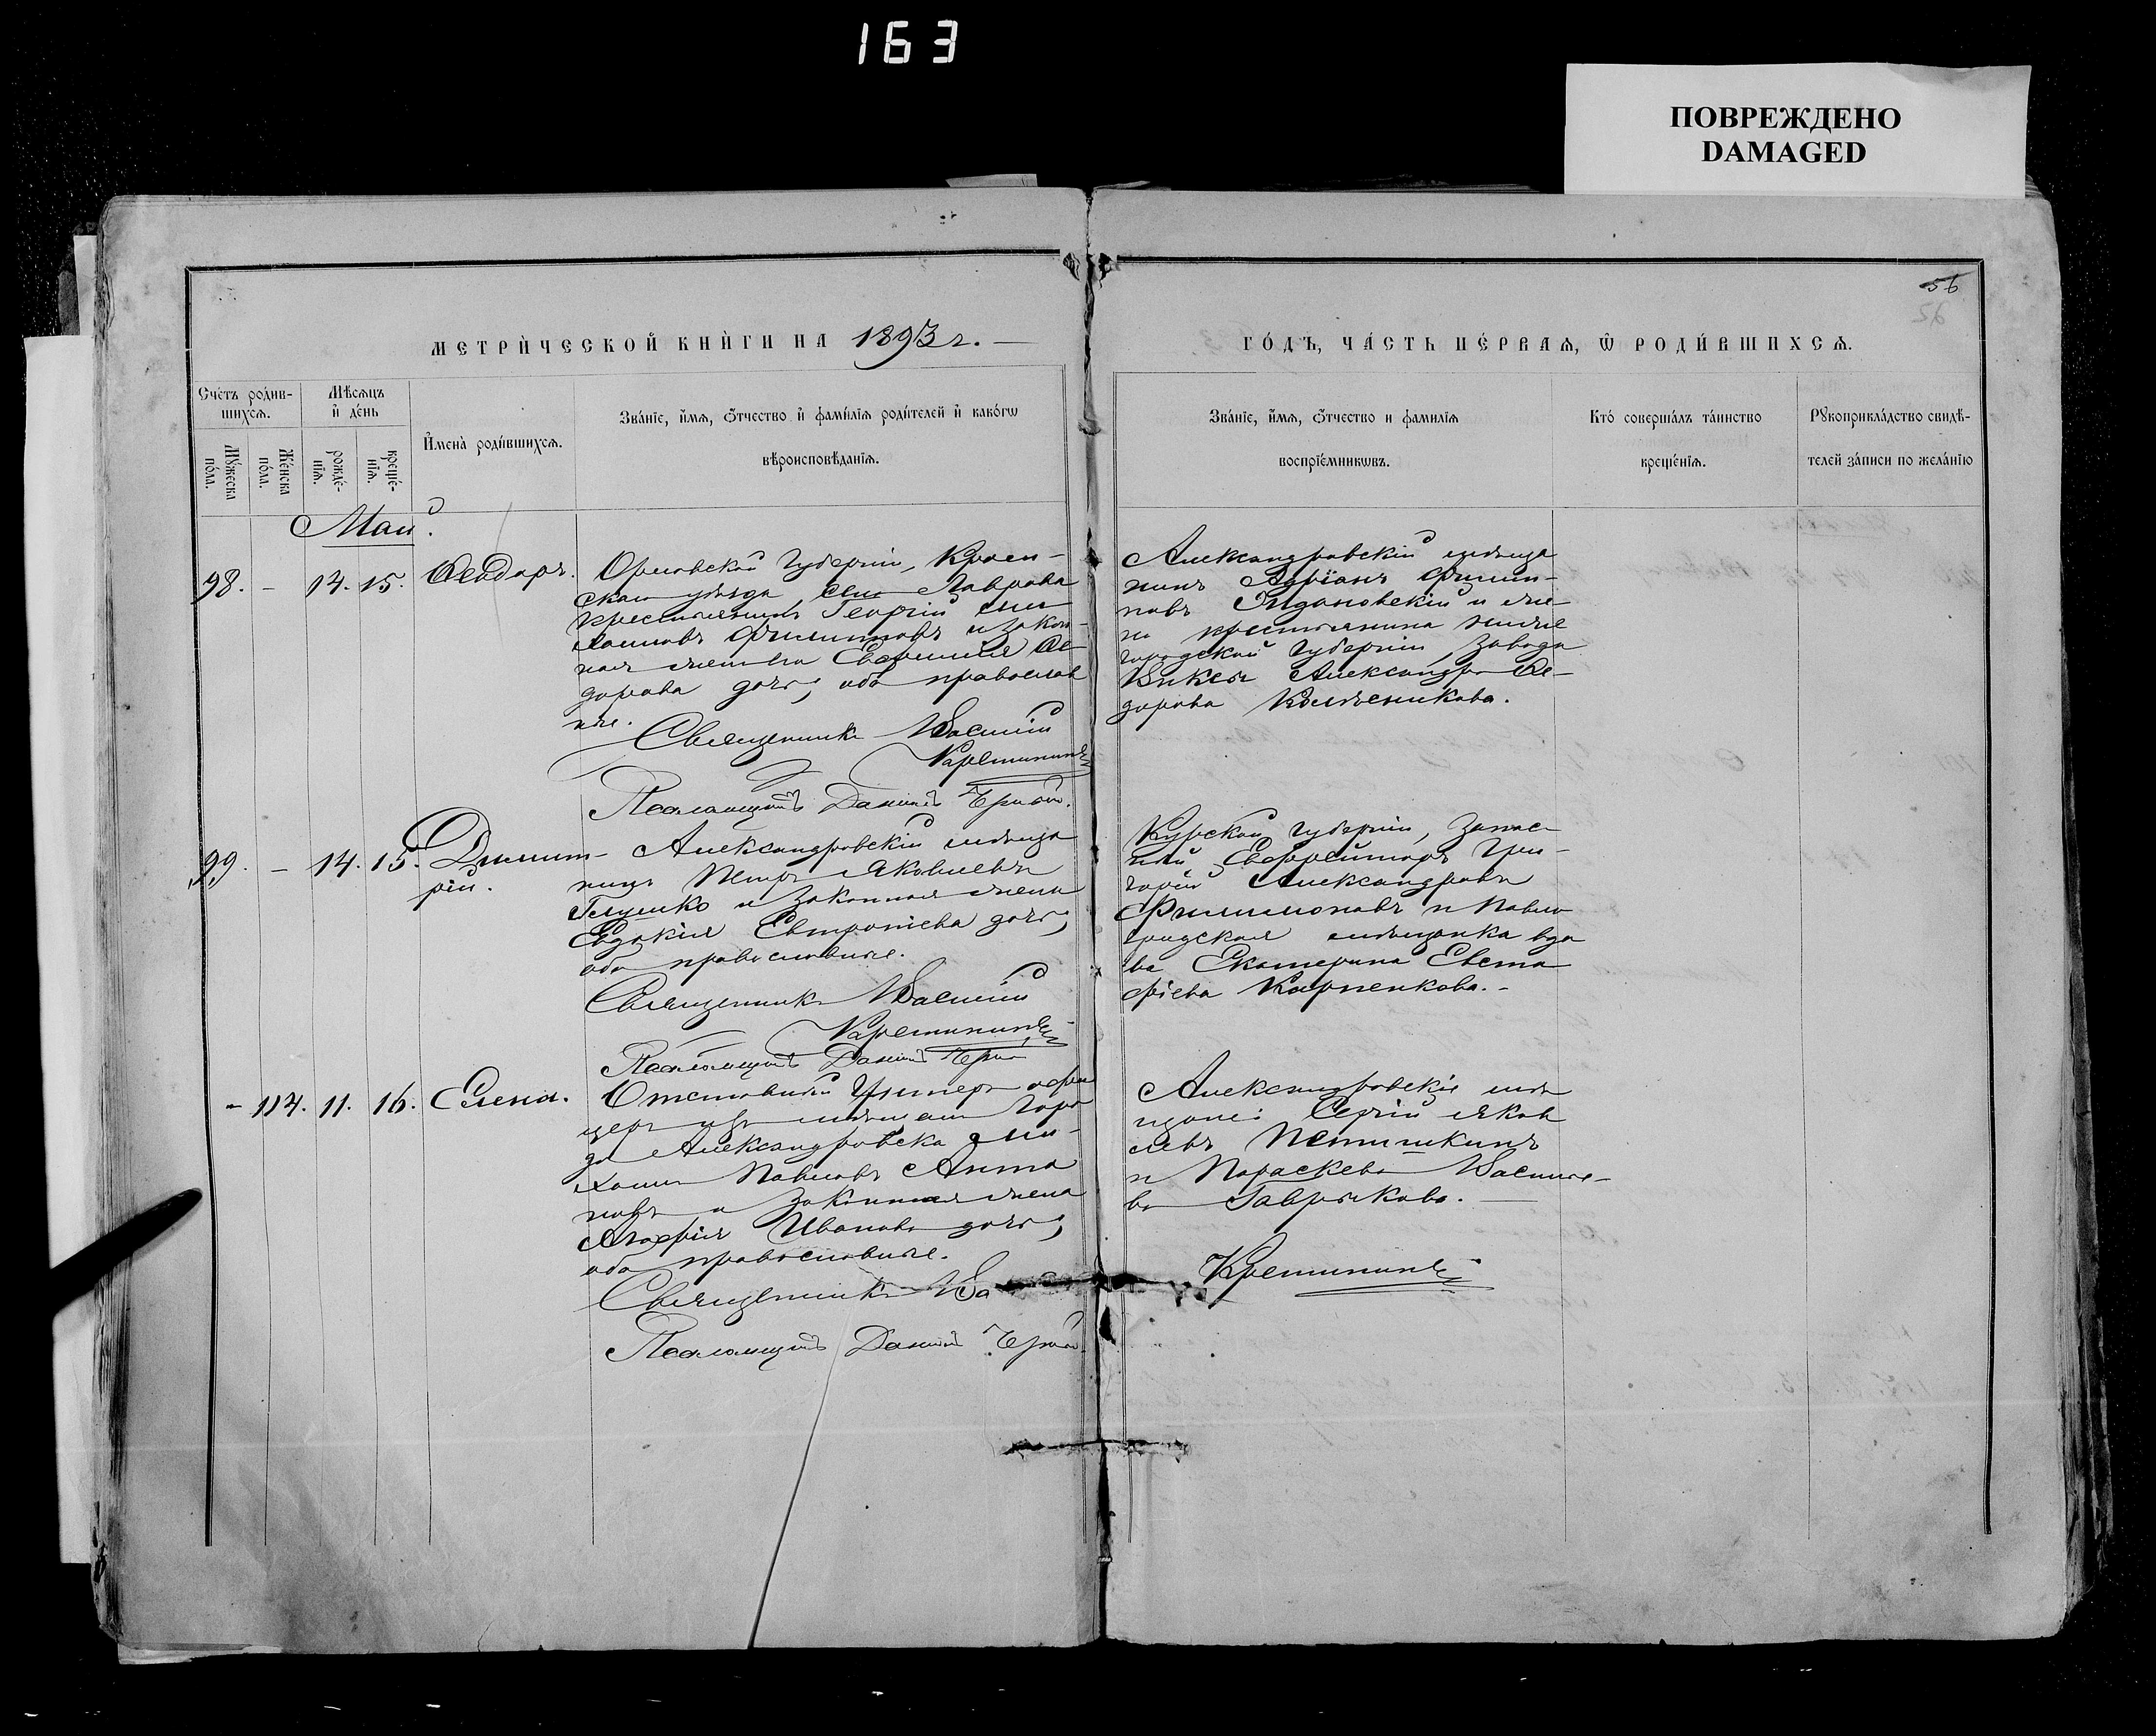 163
ПОВРЕЖДЕНО
DAMAGED
56
МЕТРИ́ЧЕСКОЙ КНИ́ГИ НА 1893 г.
ГО́ДЪ, ЧА́СТЬ ПЕ́РВАѦ, Ѿ РОДИ́ВШИХСѦ.
Сче́тъ роди́в-
шихсѧ.
Мꙋ́жеска
по́ла.
Же́нска
по́ла.
Мѣ́сѧцъ
и҆ де́нь
рожде́-
нїѧ.
креще́-
нїѧ.
И҆мена̀ роди́вшихсѧ.
Зва́нїе, и҆́мѧ, ѻ҆́тчество и҆ фами́лїѧ роди́телей и҆ како́гѡ
вѣроисповѣ́данїѧ.
Зва́нїе, и҆́мѧ, ѻ҆́тчество и фамилїѧ
воспрїе́мникѡвъ.
Кто́ соверша́лъ та́инство
креще́нїѧ.
Рꙋкоприкла́дство свидѣ́-
телей за́писи по жела́нїю
Май.
98. - 14. 15. Ѳеодоръ.
Орловской Губерніи, Кром-
скаго уѣзда, села Лаврова
крестьянинъ Георгій
Филипповъ и закон-
ная жена его Евфимія Ѳе-
дорова дочь, оба православ
ные.
Священникъ Василій
Каретининъ
Псаломщикъ Даніилъ
Александровскій мѣща
нинъ Адріанъ Филип-
повъ и же-
на крестьянина Ниже
городской Губерніи, завода
Выксы Александра Ѳе-
дорова
99. - 14. 15. Димит-
рій.
Александровскій мѣща
нинъ Петръ Яковлевъ
и законная жена
Евдокія Евтропіева дочь,
оба православные.
Священникъ Василій
Каретининъ
Псаломщикъ Даніилъ
Курской Губерніи, запас-
ный Ефрейторъ Гри-
горій Александровъ
Филимоновъ и Павло
градская мѣщанка вдо
ва Екатерина Евста
фіева Карпенкова.-
- 114. 11. 16. Елена.
Отставный Унтеръ офи
церъ изъ мѣщанъ горо
да Александровска Ми-
хаилъ Павловъ Анто
новъ и законная жена
Агафія Иванова дочь,
оба православные.
Священникъ Ва
Псаломщикъ Даніилъ
Александровскіе мѣ
щане: Сергій Яков
левъ Петишкинъ
и Параскева Василье-
ва Гаврикова.
Каретининъ